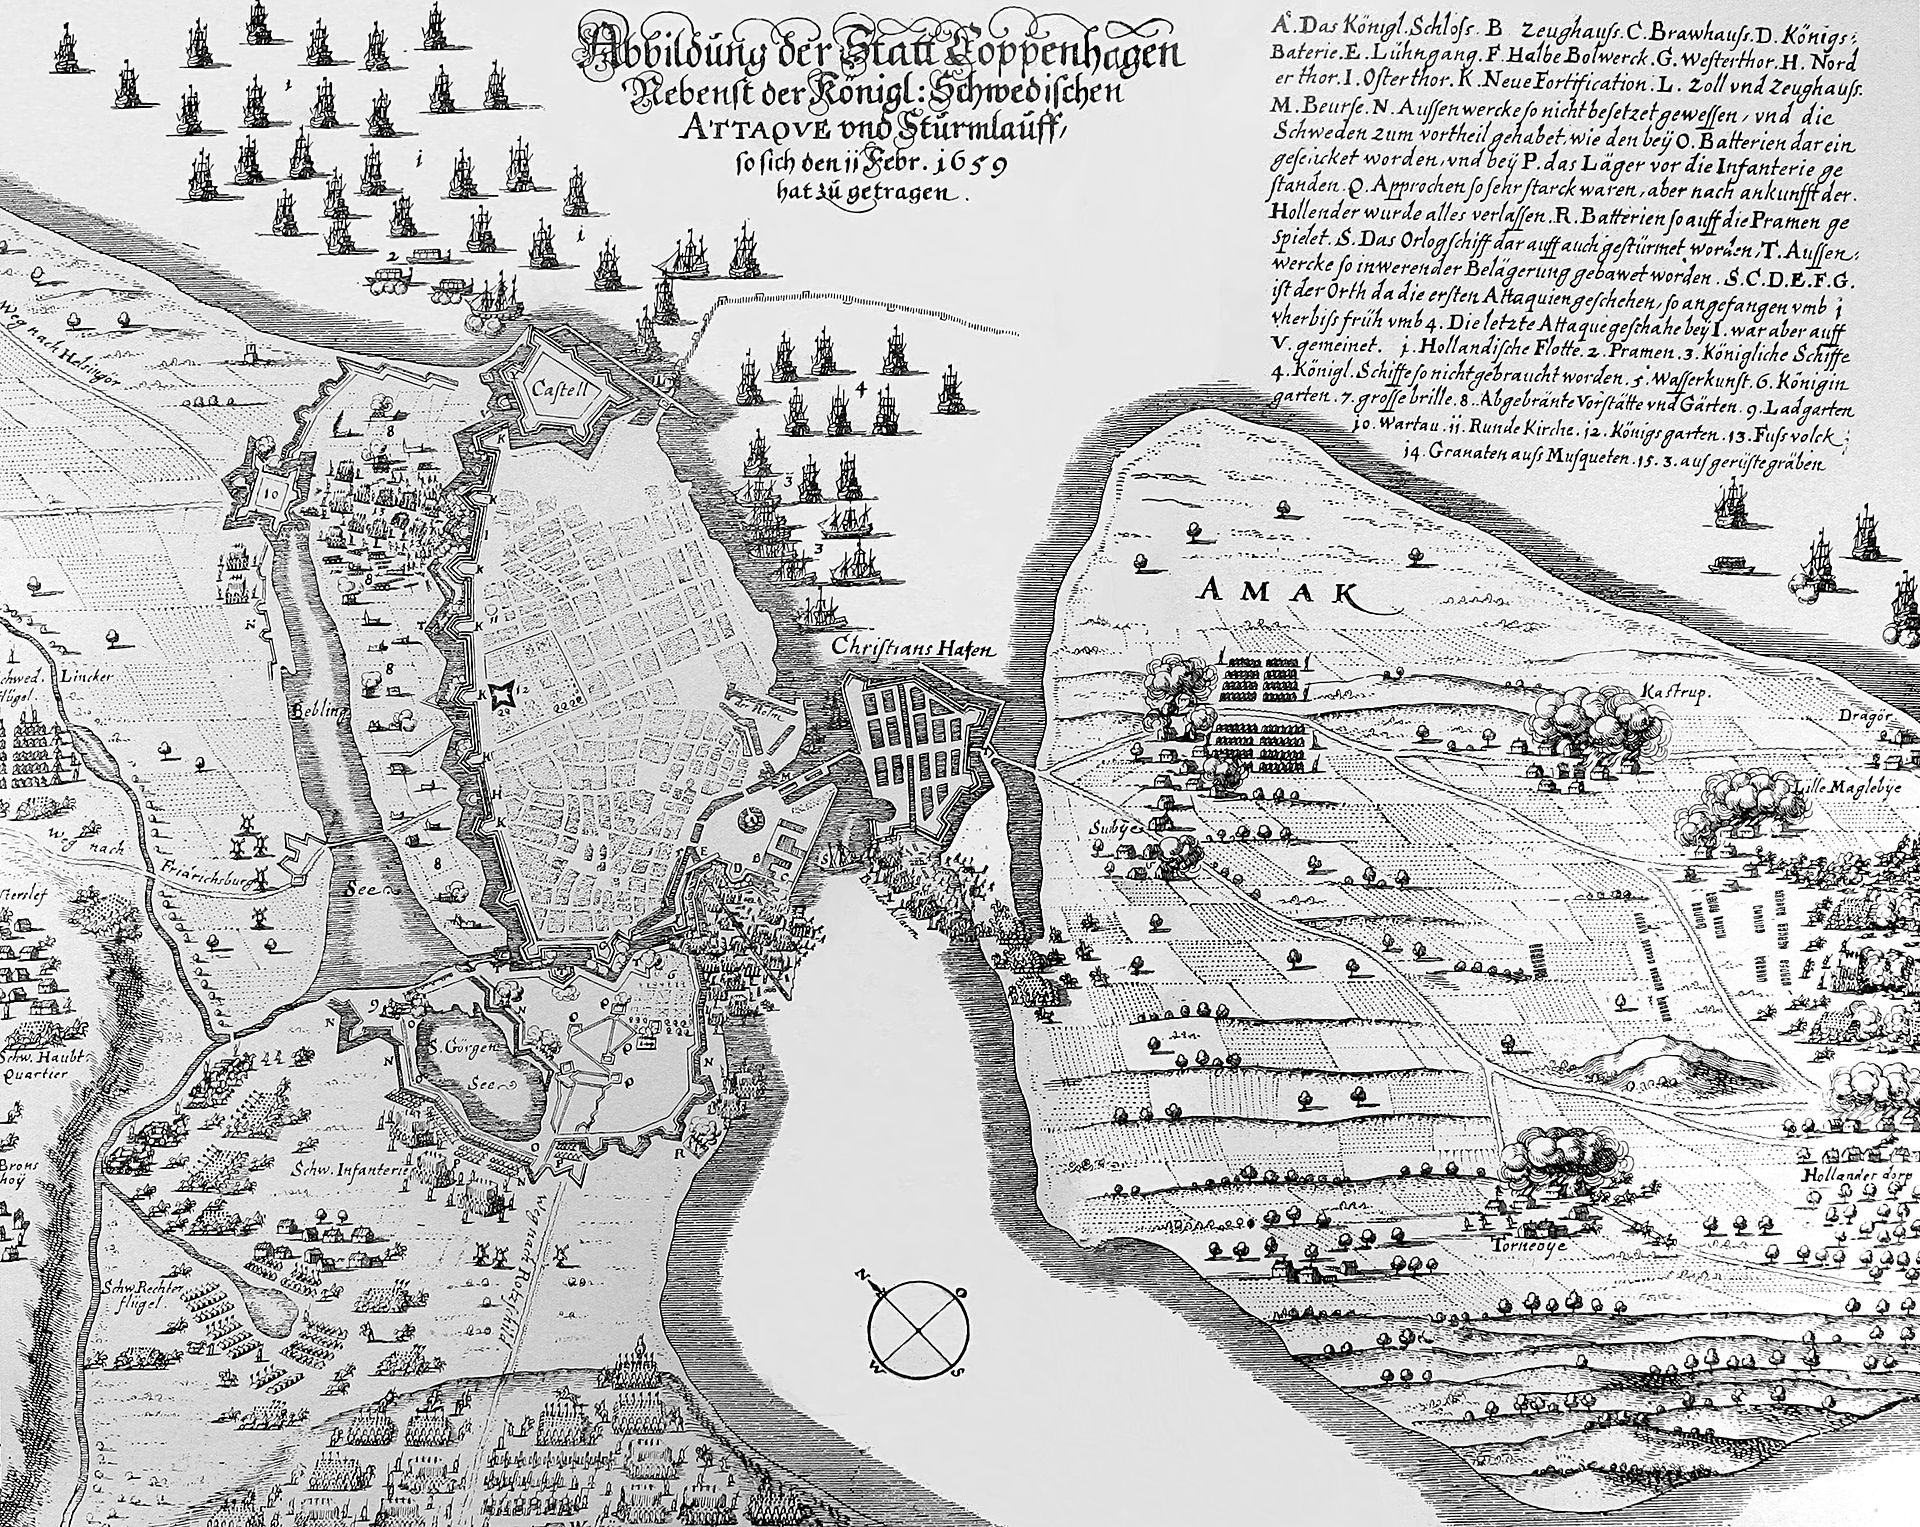 Abbildung der Statt Coppenhagen
Nebenst der Königl: Schwedischen
ATTAQVE vnd Sturmlauff,
so sich den ii Febr. 1659
hat zu getragen.
A. Das Königl. Schloss. B Zeughauss. C. Brawhauss. D. Königs:
Baterie. E. Lühngang. F. Halbe Bolwerck. G. Westerthor. H. Nord
er thor. I. Osterthor. K. Neue Fortification. L. Zoll vnd Zeughauss.
M. Beurse. N. Aussenwercke so nicht besetzet gewessen, vnd die
Schweden zum vortheil gehabet, wie den beÿ O. Batterien darein
geseücket worden, vnd beÿ P. das Läger vor die Infanterie ge
standen. Q. Approchen so sehr starck waren, aber nach ankunfft der.
Hollender wurde alles verlassen. R. Batterien so auff die Pramen ge
spielet. S. Das Orlogschiff dar auff auch gestürmet worden, T. Aussen:
wercke so in werender Belägerung gebawet worden. S.C.D.E.F.G.
ist der Orth da die ersten Attaquien geschehen, so angefangen vmb i
vher biss früh vmb 4. Die letzte Attaque geschahe beÿ I. war aber auff
V. gemeinet. i. Hollandische Flotte. 2. Pramen. 3. Königliche Schiffe
4. Königl. Schiffe so nicht gebraucht worden. 5. Wasserkunst. 6. Königin
garten. 7. grosse brille. 8. Abgebrante Vorstätte vnd Gärten. 9. Ladgarten
10. Wartau. ii. Runde Kirche. 12. Königs garten. 13. Fuss volck;
14. Granaten auss Musqueten. 15. 3. aus gerüste gräben
i
i
i
2
Weg nach Helsingör
Castell
4
8
K
K
10
13
3
K
I
K
3
8
AMAK
K
T
K
11
N
Christians Hafen
8
Schwed. Lincker
flügel.
K
12
Kastrup
Bebling
der Holm
Dragör
H
M
H
Lille Maglebye
K
Weg nach
Subÿe
Friedrichsburg
8
E
D
B
C
S
See
6
9
N
N
S. Görgen
See
N
N
N
O
O
P
Schw. Haubt
Quartier
O
R
N
Brons
hoÿ
Schw. Infanterie
Weg nach Rotschild
Hollander dorp
Torneoÿe
Schw. Rechter
flügel.
N
O
W
S